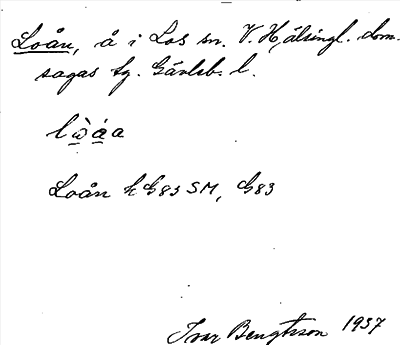 Loån, å i Los sn. V. Hälsingl. dom-
sagas tg. Gävleb. l.
lὼåa
Loån k G83 SM, G83
Ivar Bengtsson 1937